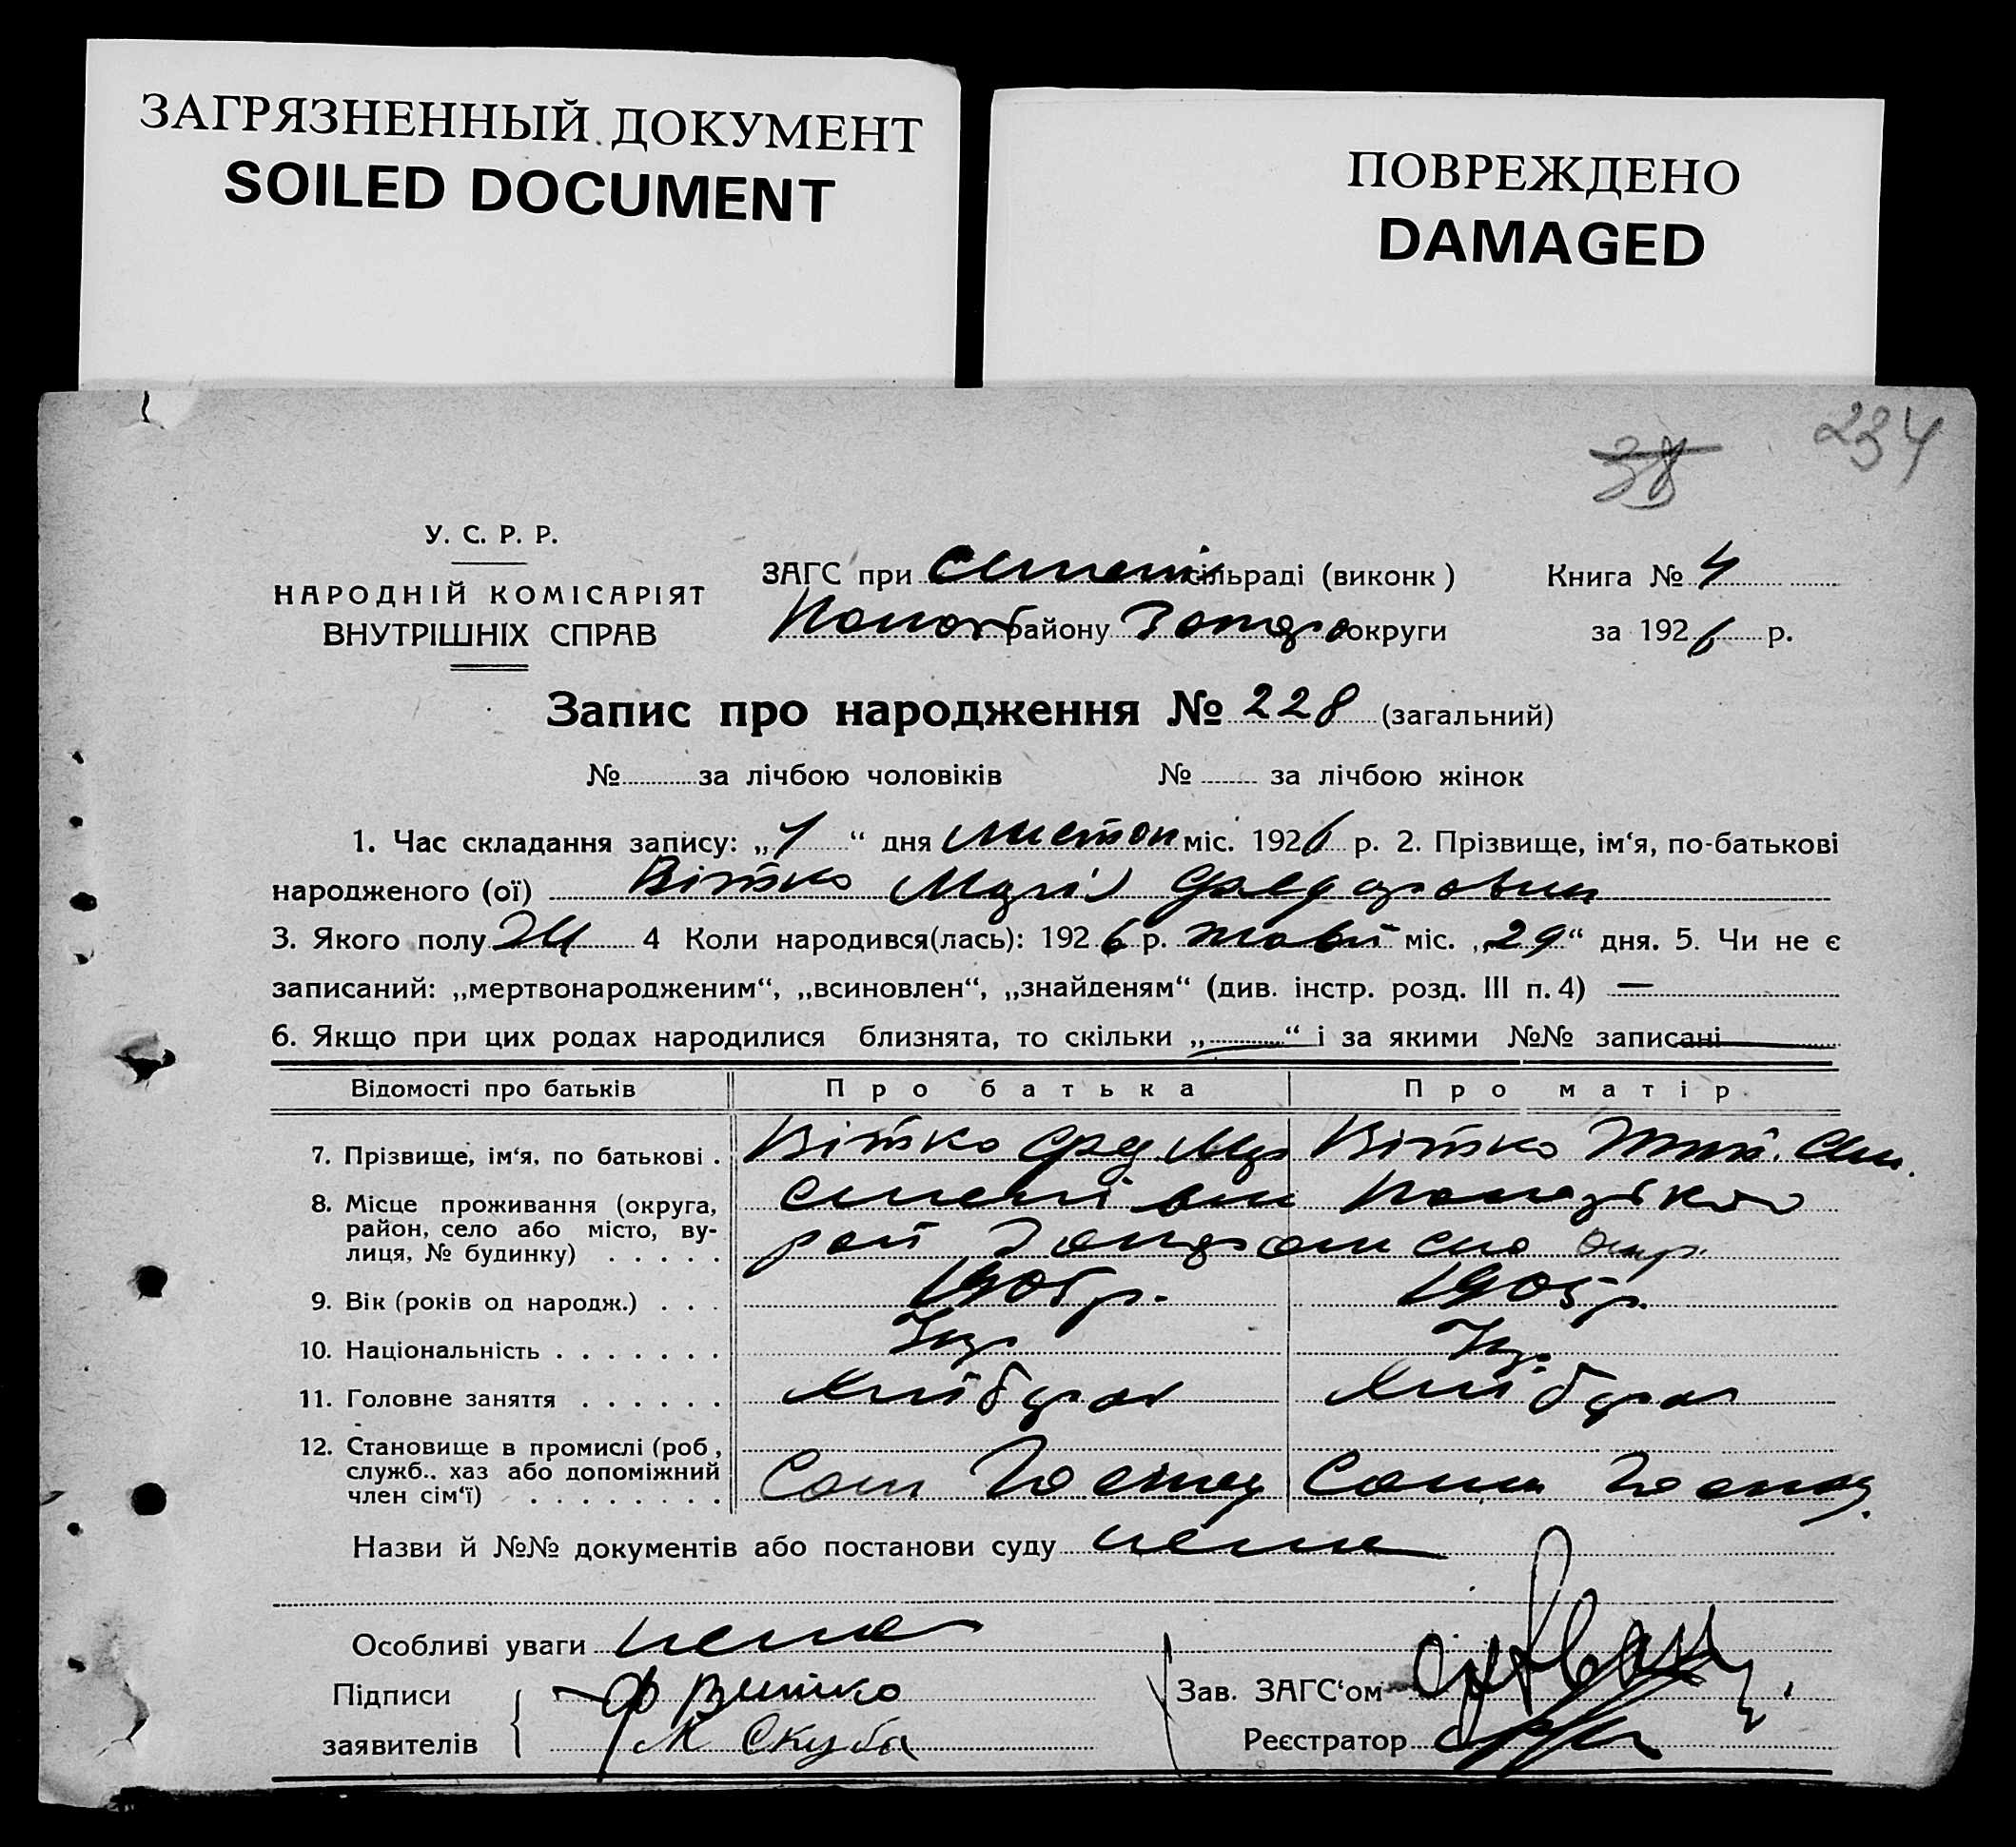 ЗАГРЯЗНЕННЫЙ ДОКУМЕНТ
SOILED DOCUMENT
ПОВРЕЖДЕНО
DAMAGED
234
38
У. С. Р. Р.
НАРОДНІЙ КОМІСАРІЯТ
ВНУТРІШНІХ СПРАВ
ЗАГС при сільраді (виконк)
району округи
Книга № 4
за 1926 р.
Запис про народження № 228 (загальний)
№ за лічбою чоловіків № за лічбою жінок
1. Час складання запису: „ “ дня листоп міс. 1926 р. 2. Прізвище, ім‘я, по-батькові
народженого (ої) Вітко Марія Федоровна
3. Якого полу Ж 4 Коли народився(лась): 1926 р. жовт міс. „29“ дня. 5. Чи не є
записаний: „мертвонародженим“, „всиновлен“, „знайденям“ (див. інстр. розд. III п. 4) —
6. Якщо при цих родах народилися близнята, то скільки „ “ і за якими №№ записані
Відомості про батьків Про батька Про матір
7. Прізвище, ім‘я, по батькові . Вітко Фед Вітко
8. Місце проживання (округа,
район, село або місто, ву-
лиця, № будинку) . . . . . окр.
9. Вік (років од народж.) . . . 1905р. 1905р.
10. Національність . . . . . . . Укр Укр.
11. Головне заняття . . . . . . Хлібороб Хлібороб
12. Становище в промислі (роб,
служб., хаз або допоміжний
член сім‘ї) . . . . . . . .
Назви й №№ документів або постанови суду нема
Особливі уваги нема
Підписи
заявителів
Ф Витко
М Скуба
Зав. ЗАГС‘ом
Реєстратор